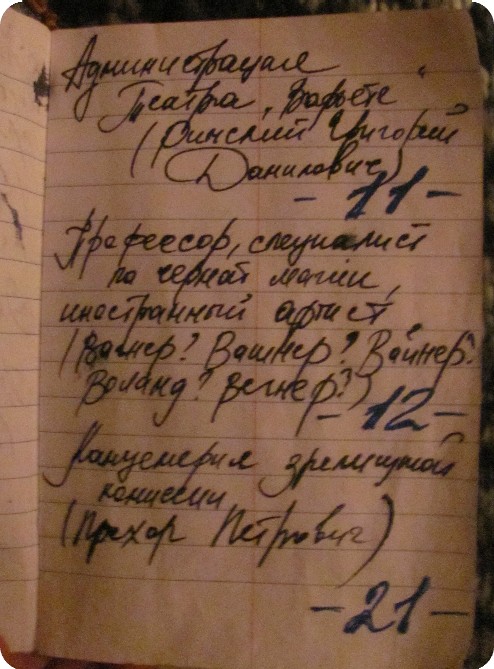 Администрация
Театра „Варьете"
(Римский Григорий
Данилович)
- 11 -
Профессор, специалист
по черной магии,
иностранный артист
(Вагнер? Вашнер? Вайнер?
Воланд? Вегнер?)
- 12 -
Канцелярия зрелищной
комиссии
(Прохор Петрович)
- 21 -